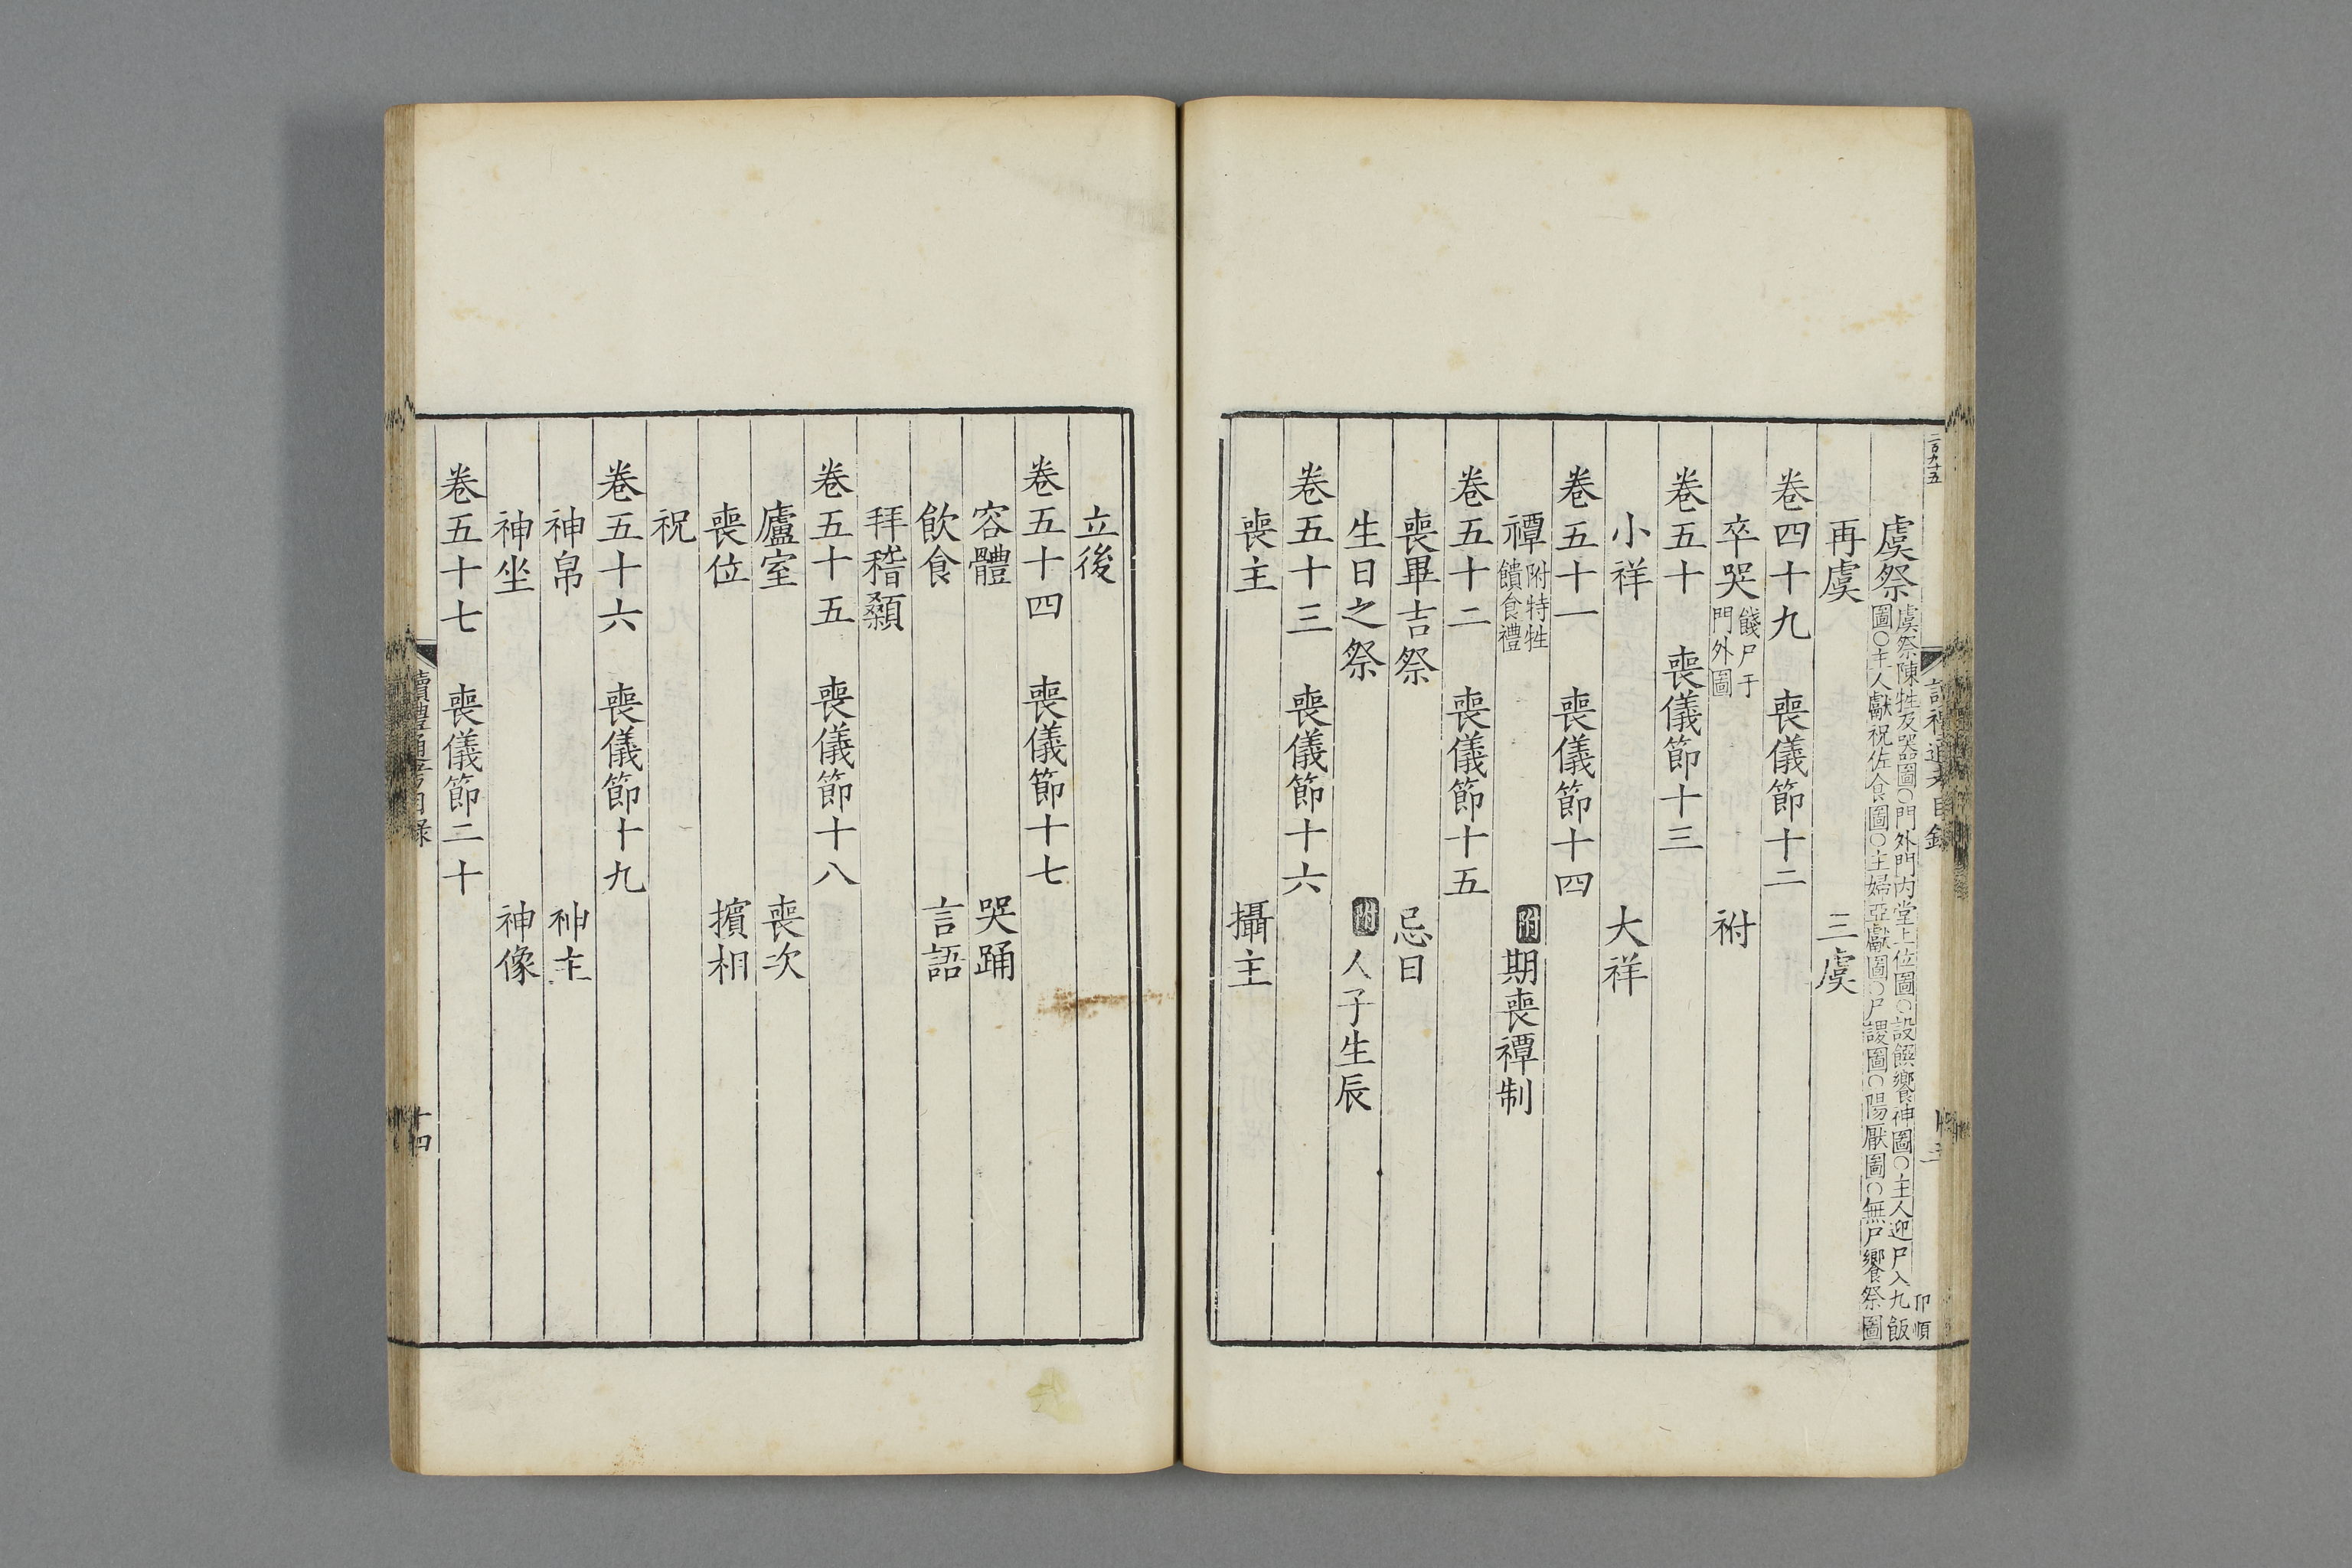 二百九十五
虞祭 虞祭陳牲及器圖○門外門内堂上位圖○設饌饗神圖○主人迎尸入九飯
圖○主人獻祝佐食圖○主婦亞獻圖○尸謖圖○陽厭圖○無尸饗祭圖
再虞 三虞
卷四十九 喪儀節十二
卒哭 餞尸于
門外圖 祔
卷五十 喪儀節十三
小祥 大祥
卷五十一 喪儀節十四
禫 附特牲
饋食禮 附 期喪禫制
卷五十二 喪儀節十五
喪畢吉祭 忌日
生日之祭 附 人子生辰
卷五十三 喪儀節十六
喪主 攝主
立後
卷五十四 喪儀節十七
容體 哭踊
飲食 言語
拜稽顙
卷五十五 喪儀節十八
廬室 喪次
喪位 擯相
祝
卷五十六 喪儀節十九
神帛 神主
神坐 神像
卷五十七 喪儀節二十
讀禮通考目錄
十四